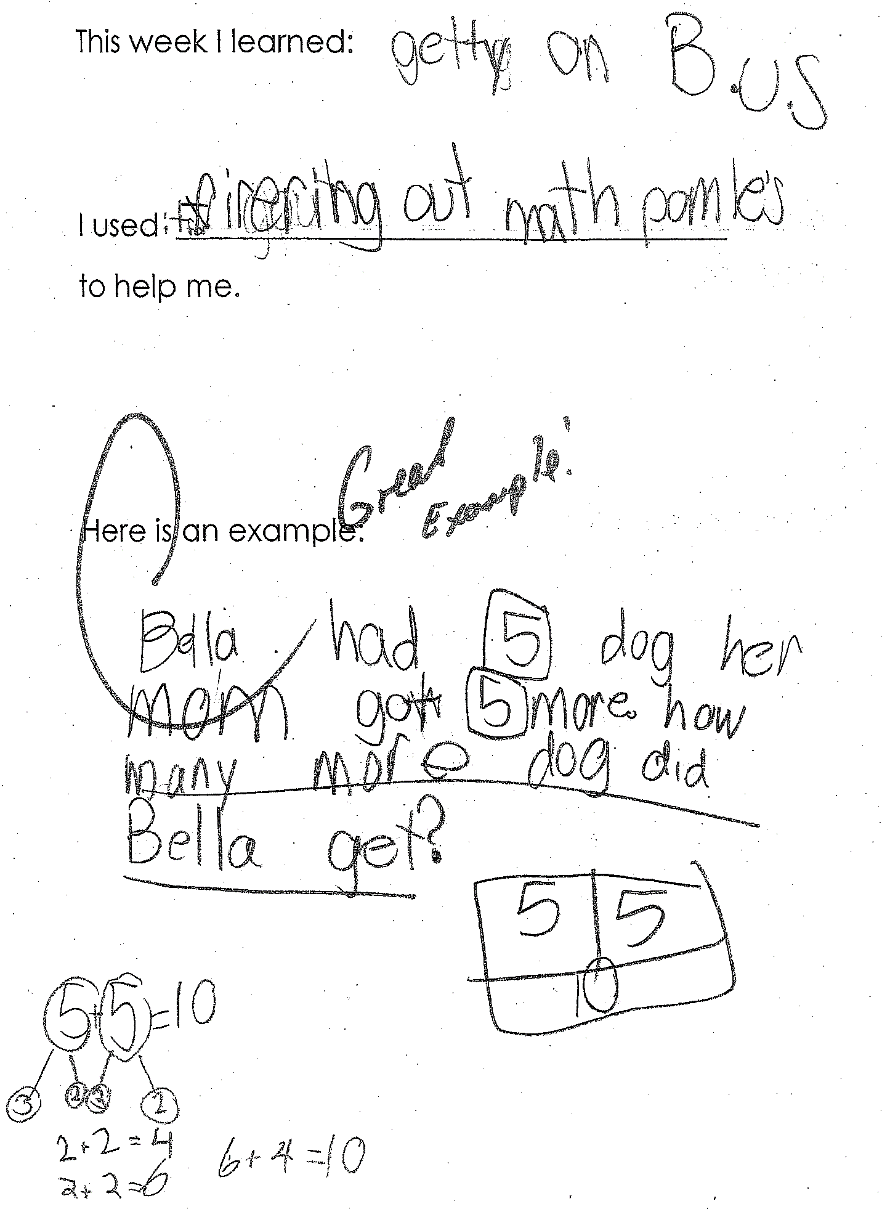 This week I learned: getty on B.U.S
I used: out math pomle's
to help me.
Great
Example!
Here is an example:
Bella had 5 dog her
mom got 5 more how
many more dog did
Bella get?
5 5
10
5+5=10
3 2 3 2
2+2=4
2+2=6
6+4=10